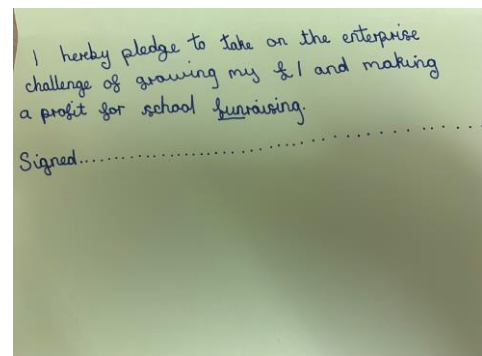 I hereby pledge to take on the enterprise
challenge of growing my £1 and making
a profit for school funraising.
Signed................................................